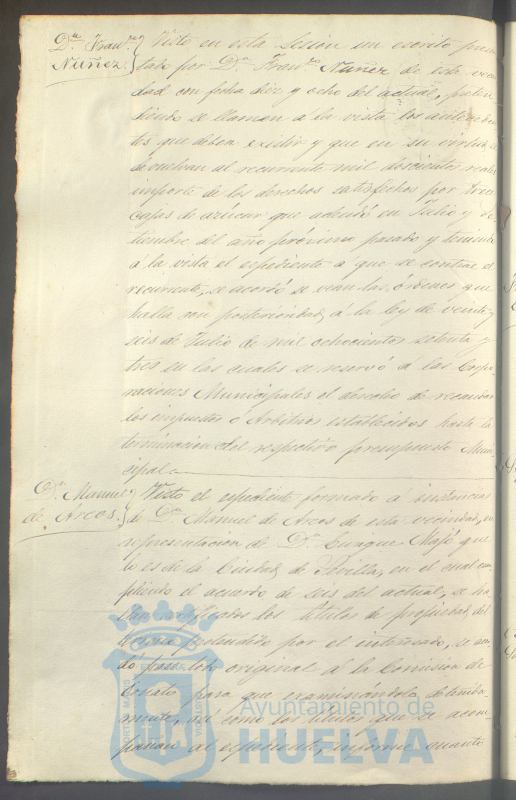 Dn. Franco.
Nuñez.
Visto en esta Sesion un escrito presen
tado por Dn. Franco. Nuñez de esta vecin
dad con fecha diez y ocho del actual, preten
diendo se llamen á la vista los anteceden
tes que deben existir y que en su virtud se
devuelvan al recurrente mil doscientos reales
importe de los derechos satisfechos por tres
cajas de azucar que adeudó en Julio y Se
tiembre del año próximo pasado y teniendo
á la vista el espediente á que se contrae el
recurrente, se acordó se vean las órdenes que
halla con posterioridad á la ley de veinte y
seis de Julio de mil ochocientos setenta y
tres en las cuales se reservó á las Corpo
raciones Municipales el derecho de recaudar
los impuestos ó Arbitrios establecidos hasta la
terminacion del respectivo presupuesto Muni
cipal.
Dn. Manuel
de Arcos.
Visto el espediente formado á instancias
de Dn. Manuel de Arcos de esta vecindad, en
representacion de Dn. Enrique Majó que
lo es de la Ciudad de Sevilla, en el cual cum
pliendo el acuerdo de seis del actual, se ha
los títulos de propiedad del
pretendido por el interesado, se acor
dó pase todo original á la Comision de
para que examinándola detenida
mente, así como los títulos que se acom
pañan al espediente, informe cuanto
Ayuntamiento de
HUELVA